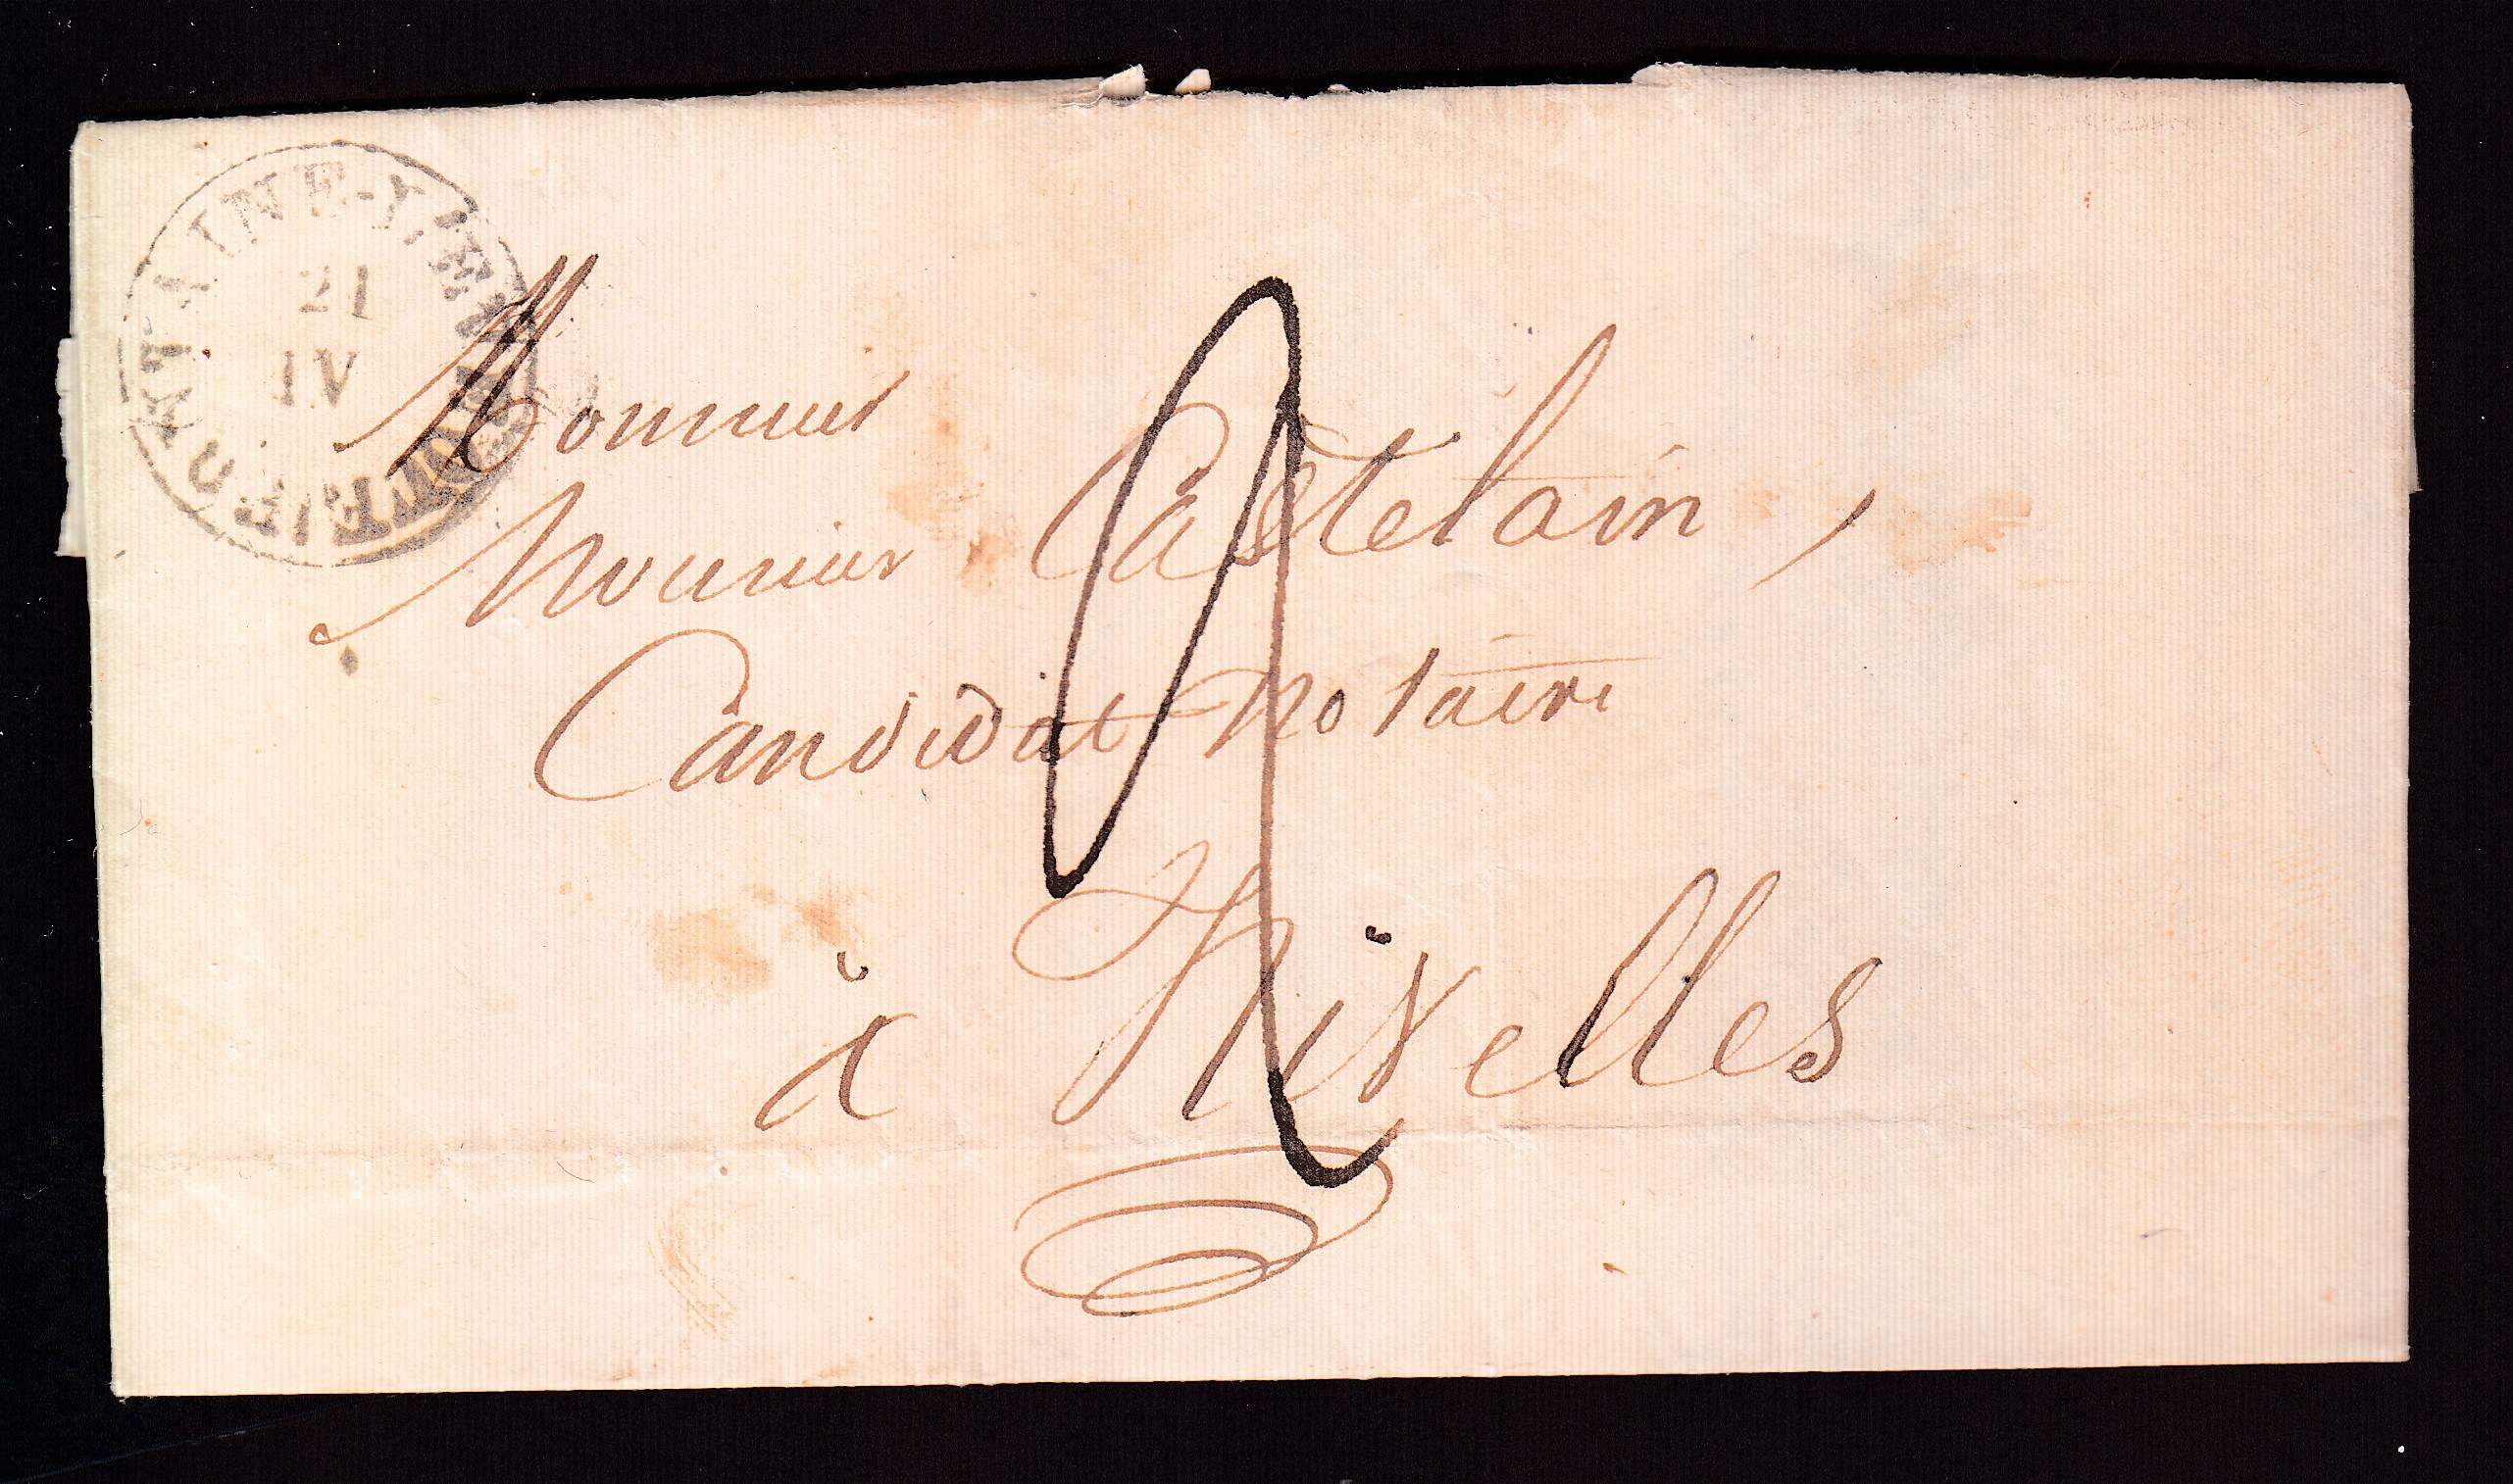 FONTAINE-L'EVEQUE
21
IV
Monsieur
Monsieur Castelain,
Candidat notaire
à Nivelles
2